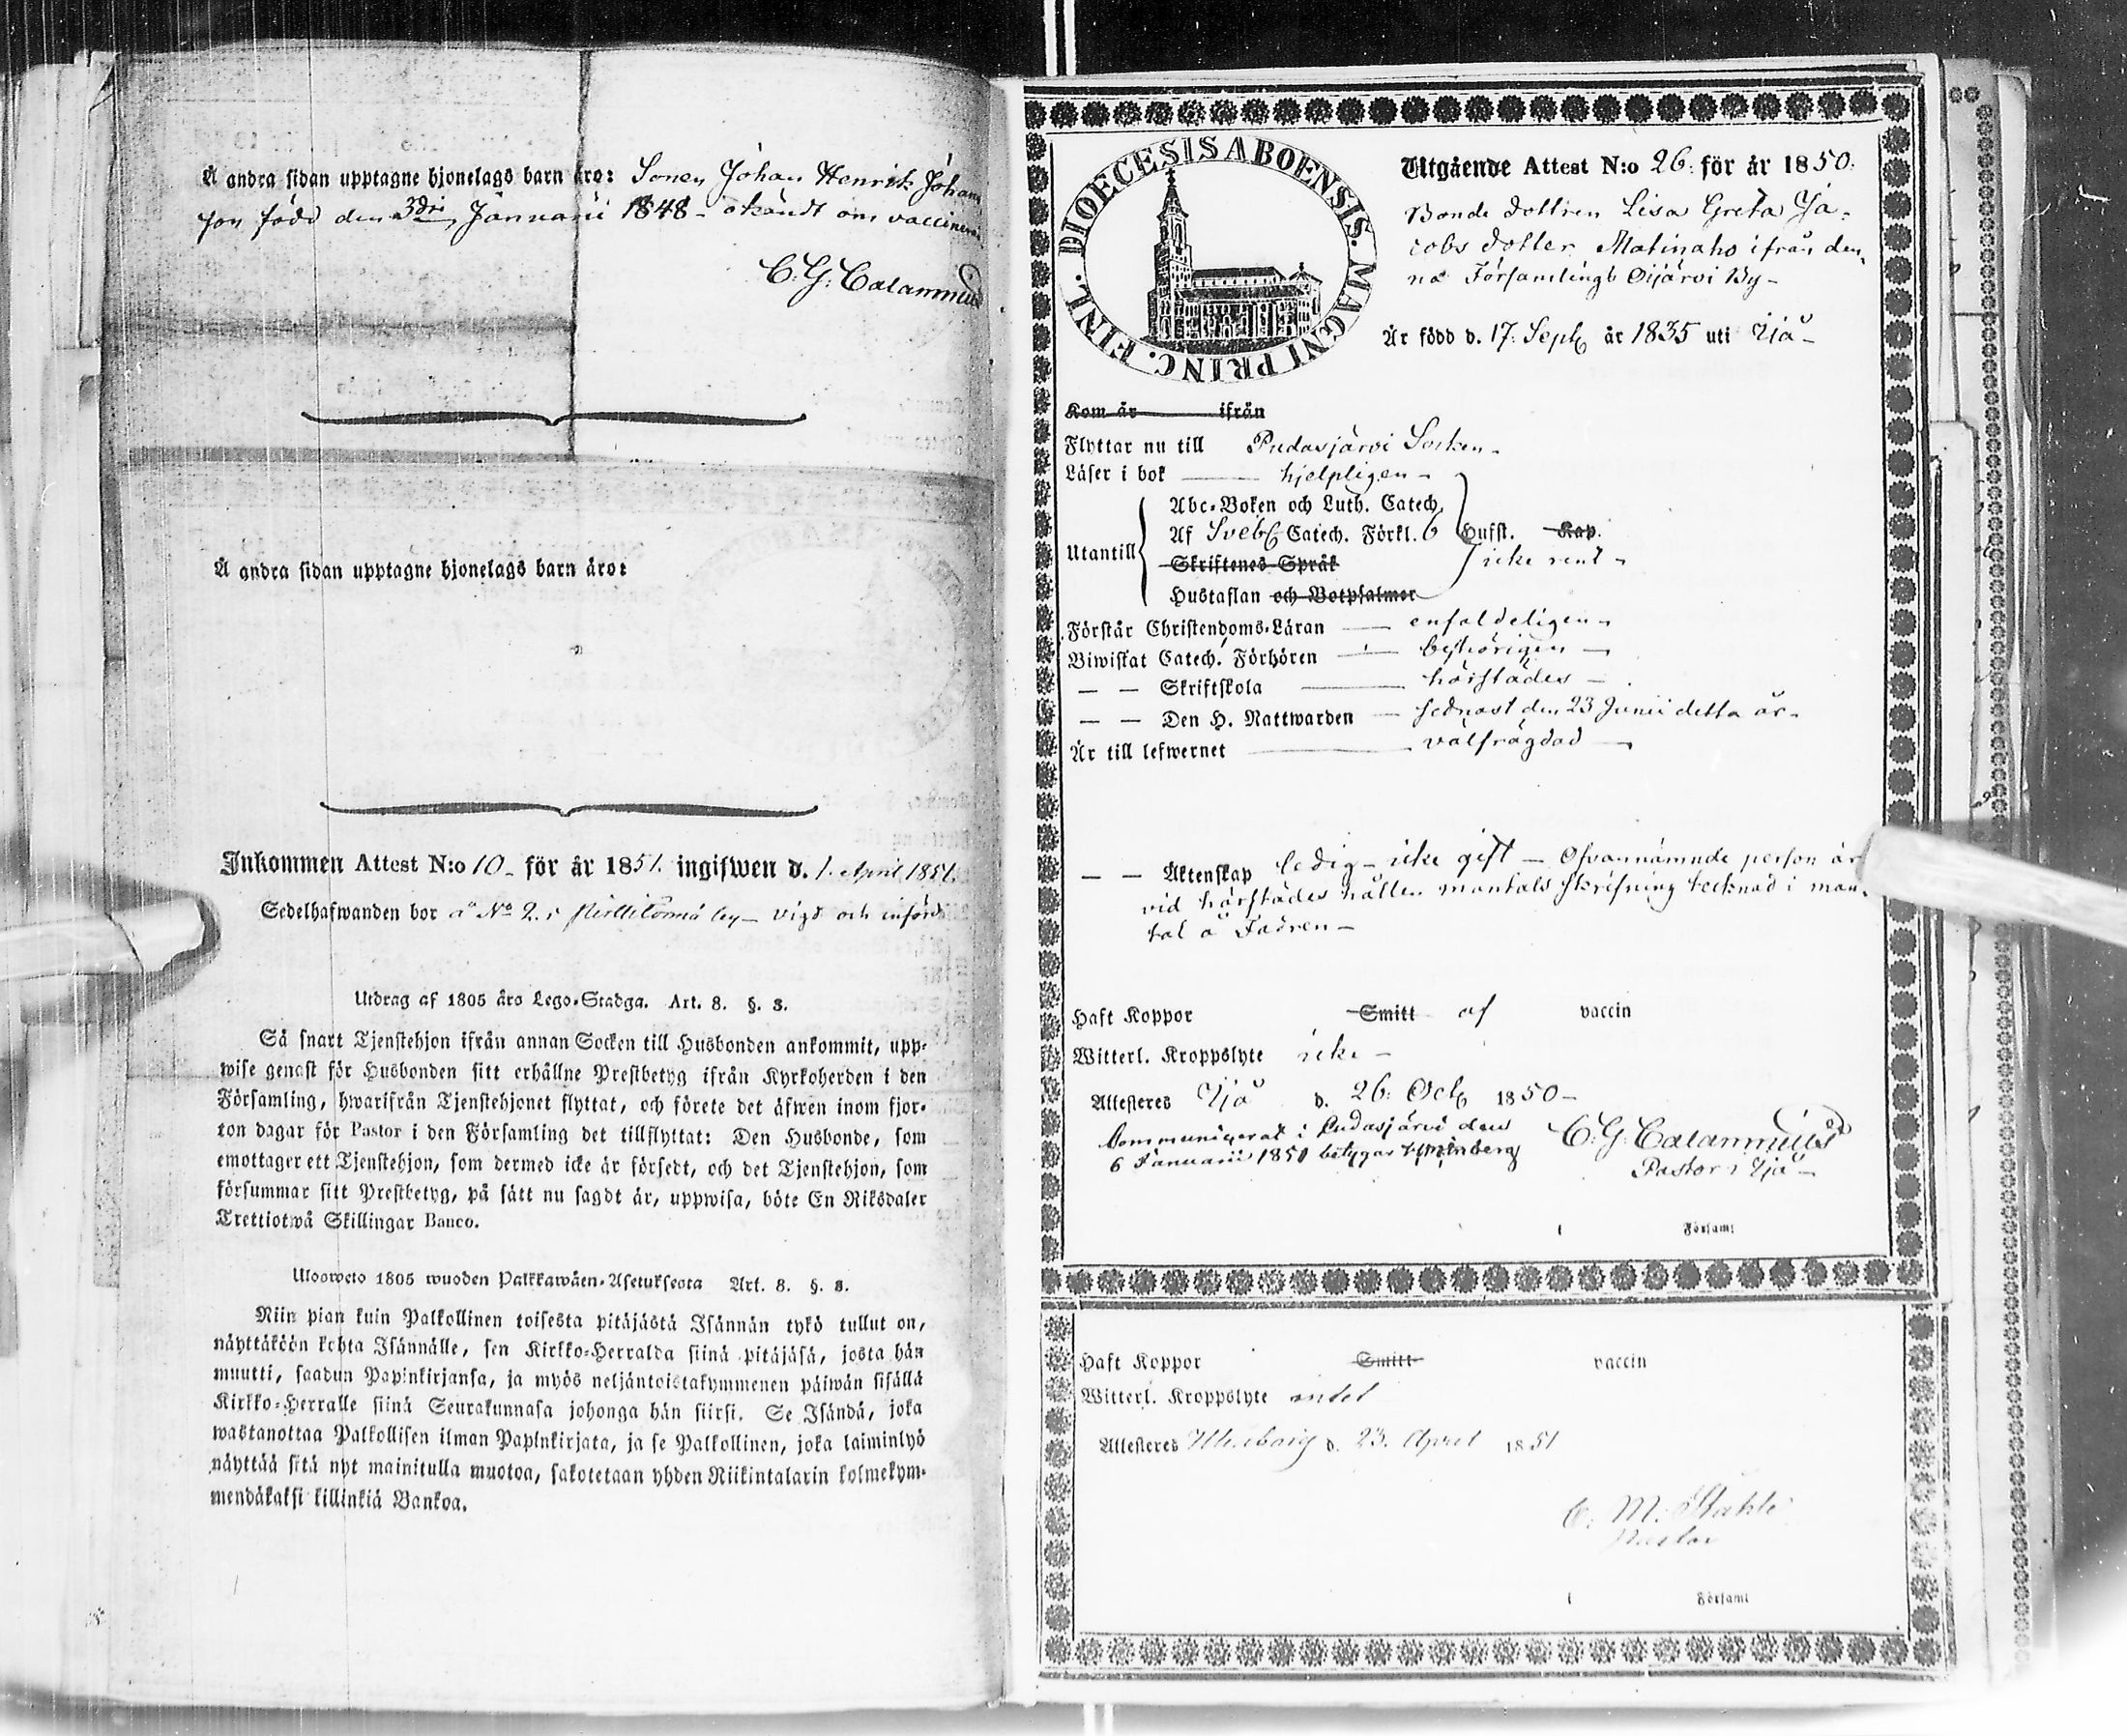 Å andra sidan upptagne hjonelags barn äro: Sonen Johan Henrik Johans
son född den 3dri Januarii 1848 - okändt om vaccinerad
C. G. Calamnius
Å andra sidan upptagne hjonelags barn äro:
Inkommen Attest N:o 10 - för år 1851. ingifwen d. 1. April 1851.
Sedelhafwanden bor å No 2. i by - vigd och införd
Utdrag af 1805 års Lego-Stadga. Art. 8. §. 3.
Så snart Tjenstehjon ifrån annan Socken till Husbonden ankommit, upp-
wise genast för Husbonden sitt erhållne Prestbetyg ifrån Kyrkoherden i den
Församling, hwarifrån Tjenstehjonet flyttat, och förete det äfwen inom fjor-
ton dagar för Pastor i den Församling det tillflyttat: Den Husbonde, som
emottager ett Tjenstehjon, som dermed icke är försedt, och det Tjenstehjon, som
försummar sitt Prestbetyg, på sätt nu sagdt är, uppwisa, böte En Riksdaler
Trettiotwå Skillingar Banco.
Ulosweto 1805 wuoden Palkkawäen-Asetuksesta Art. 8. §. 3.
Niin pian kuin Palkollinen toisesta pitäjästä Isännän tykö tullut on,
näyttäköön kohta Isännälle, sen Kirkko-Herralda siinä pitäjäsä, josta hän
muutti, saadun Papinkirjansa, ja myös neljäntoistakymmenen päiwän sisällä
Kirkko-Herralle siinä Seurakunnasa johonga hän siirsi. Se Isändä, joka
wastanottaa Palkollisen ilman Papinkirjata, ja se Palkollinen, joka laiminlyö
näyttää sitä nyt mainitulla muotoa, sakotetaan yhden Riikintalarin kolmekym-
mendäkaksi killinkiä Bankoa.
DIOECESIS ABOENSIS. MAGNI PRINC. FINL.
Utgående Attest N:o 26: för år 1850.
Bonde dottren Lisa Greta Ja-
cobs dotter Matinaho ifrån den-
na Församlings Oijärvi By -
Är född d. 17. Sept. år 1835 uti Ijå -
Kom år ifrån
Flyttar nu till Pudasjärvi Socken -
Läser i bok hjelpligen -
Abc-Boken och Luth. Catech.
Utantill Af Sveb. Catech. Förkl. 6 Hufst. Kap.
Skriftenes Språk icke rent -
Hustaflan och Botpsalmer
Förstår Christendoms-Läran enfaldeligen -
Biwistat Catech. Förhören behörigen -
— — Skriftskola härstädes -
— — Den H. Nattwarden sednast den 23 Junii detta år -
Är till lefwernet välfrägdad -
— — Äktenskap ledig - icke gift - Ofvannämnde person är
vid härstädes hållen mantals skrifning tecknad i man-
tal å Fadren -
Haft Koppor Smitt af vaccin
Witterl. Kroppslyte icke -
Attesteras Ijå d. 26. Oct. 1850 -
Communicerat i Pudasjärvi den C. G. Calamnius
6 Januarii 1851 betygar Pastor i Ijå -
i Församl
Haft Koppor Smitt vaccin
Witterl. Kroppslyte intet
Attesteres Uleåborg d. 23. April 1851
C. M. Ståhle
Pastor
i Församl